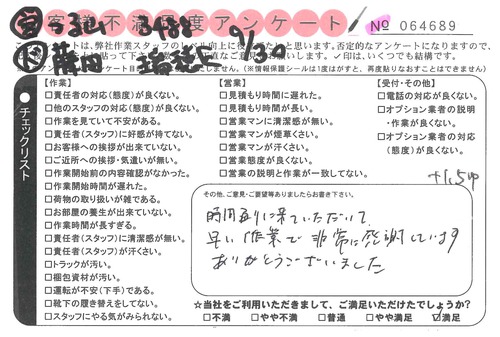 お客様不満足度アンケート
No 064689
9/30
チェックリスト
【作業】
□責任者の対応(態度)が良くない。
□他のスタッフの対応(態度)が良くない。
□作業を見ていて不安がある。
□責任者(スタッフ)に好感が持てない。
□お客様への挨拶が出来ていない。
□ご近所への挨拶・気遣いが無い。
□作業開始前の内容確認がなかった。
□作業開始時間が遅れた。
□荷物の取り扱いが雑である。
□お部屋の養生が出来ていない。
□作業時間が長すぎる。
□責任者(スタッフ)に清潔感が無い。
□責任者(スタッフ)が汗くさい。
□トラックが汚い。
□梱包資材が汚い。
□運転が不安(下手)である。
□靴下の履き替えをしてない。
□スタッフにやる気がみられない。
【営業】
□見積もり時間に遅れた。
□見積もり時間が長い。
□営業マンに清潔感が無い。
□営業マンが煙草くさい。
□営業マンが汗くさい。
□営業態度が良くない。
□営業の説明と作業が一致してない。
【受付・その他】
□電話の対応が良くない。
□オプション業者の説明・作業が良くない。
□オプション業者の対応(態度)が良くない。
その他、ご意見・ご要望等ありましたらお書き下さい。
時間通りに来ていただいて
早い作業で非常に感謝しています
ありがとうございました
☆当社をご利用いただきまして、ご満足いただけでしょうか?
□不満 □やや不満 □普通 □やや満足 ☑満足